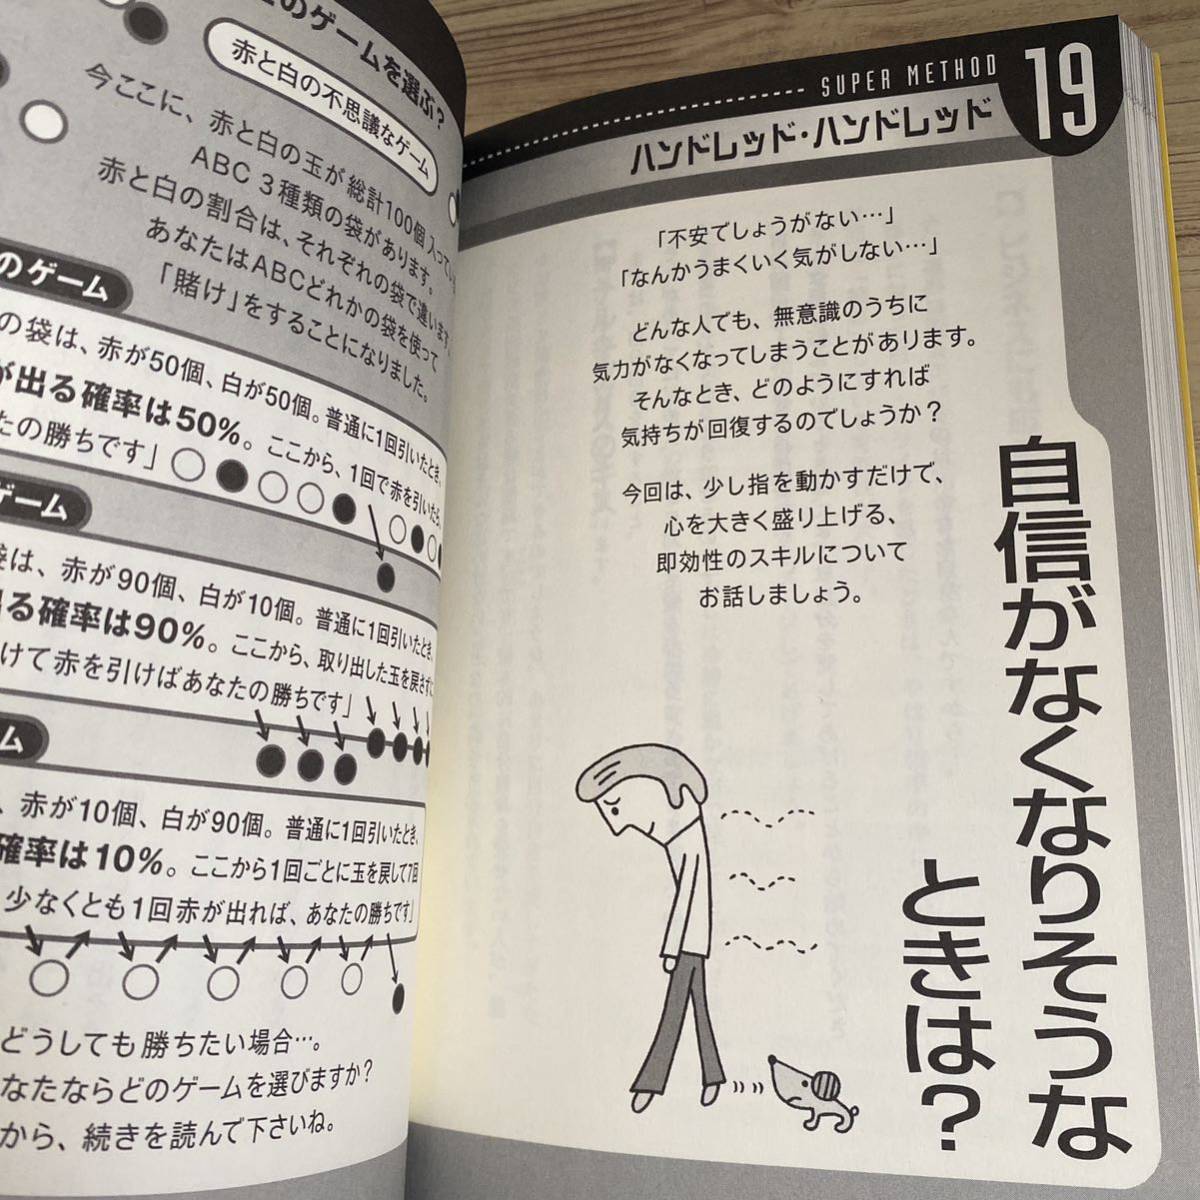 のゲームを選ぶ?
赤と白の不思議なゲーム
今ここに、赤と白の玉が総計100個入っている
ABC 3種類の袋があります。
赤と白の割合は、それぞれの袋で違います。
あなたはABCどれかの袋を使って
「賭け」をすることになりました。
のゲーム
の袋は、赤が50個、白が50個。普通に1回引いたとき、
が出る確率は50%。ここから、1回で赤を引いたら、
たの勝ちです」
ゲーム
は、赤が90個、白が10個。普通に1回引いたとき、
る確率は90%。ここから、取り出した玉を戻さずに
けて赤を引けばあなたの勝ちです」
ム
、赤が10個、白が90個。普通に1回引いたとき、
確率は10%。ここから1回ごとに玉を戻して7回
少なくとも1回赤が出れば、あなたの勝ちです」
どうしても勝ちたい場合…。
なたならどのゲームを選びますか?
から、続きを読んで下さいね。
SUPER METHOD 19
ハンドレッド・ハンドレッド
「不安でしょうがない…」
「なんかうまくいく気がしない…」
どんな人でも、無意識のうちに
気力がなくなってしまうことがあります。
そんなとき、どのようにすれば
気持ちが回復するのでしょうか?
今回は、少し指を動かすだけで、
心を大きく盛り上げる、
即効性のスキルについて
お話しましょう。
自信がなくなりそうな
ときは?